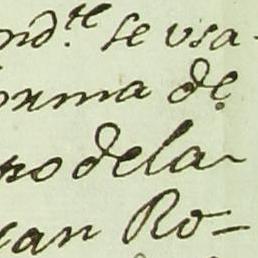 ndte se usa
orma de
ro dela
can Ro-